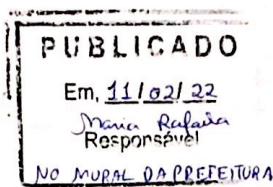 PUBLICADO
Em, 11/02/22
Maria Rafaela
Responsável
NO MURAL DA PREFEITURA